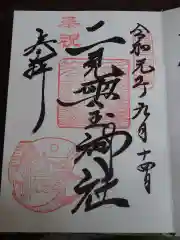 令和元年九月十四日
奉祝
二見興玉神社
奉拝